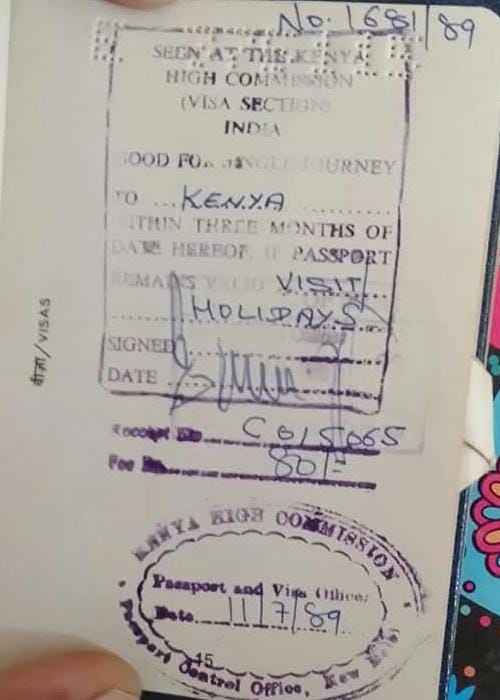 No. 1681/89
SEEN AT THE KENYA
HIGH COMMISSION
(VISA SECTION)
INDIA
GOOD FOR SINGLE JOURNEY
TO ... KENYA ..........
WITHIN THREE MONTHS OF
DATE HEREOF, IF PASSPORT
REMAINS VALID VISIT
HOLIDAYS
SIGNED
DATE
Receipt No. C 615065
Fee Rs. 80/=
KENYA HIGH COMMISSION
Passport and Visa Officer
Date 11/7/89
Passport Control Office, New Delhi
45
वीज़ा/VISAS